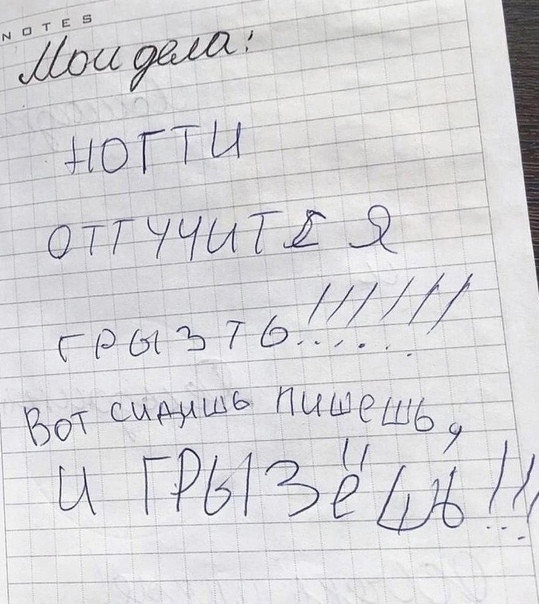 NOTES
Мои дела:
НОГТИ
ОТГУЧИТСЯ
ГРЫЗТЬ!!!!!!!
Вот сидишь пишешь,
И ГРЫЗёшь!!!